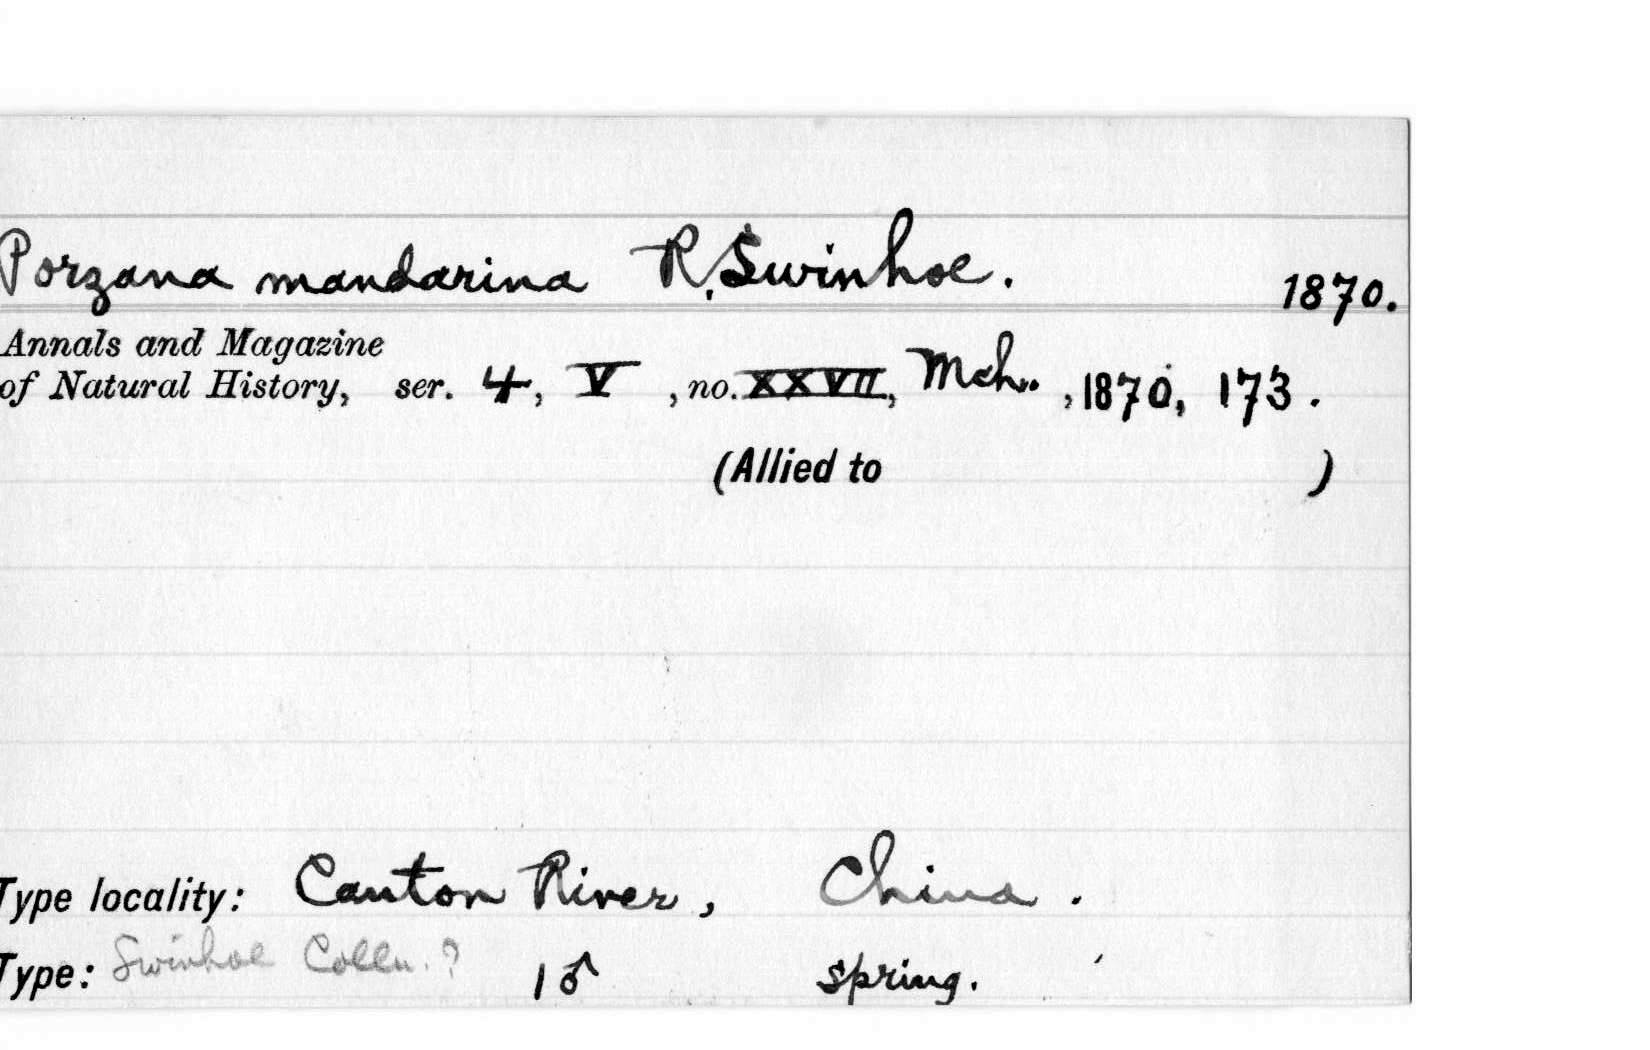 Porzana mandarina R. Swinhoe. 1870.
Annals and Magazine
of Natural History, ser. 4, V, no. XXVII, Mch., 1870, 173.
(Allied to )
Type locality: Canton River, China.
Type: Swinhoe Colln.? 1♂ spring.